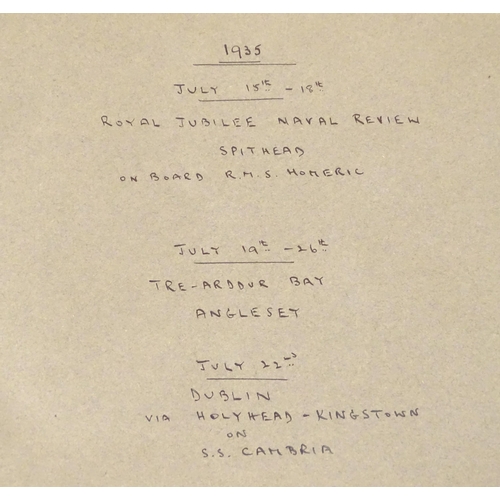 1935
JULY 15th - 18th
ROYAL JUBILEE NAVAL REVIEW
SPITHEAD
ON BOARD R.M.S. HOMERIC
JULY 19th - 26th
TRE-ARDDUR BAY
ANGLESEY
JULY 22nd
DUBLIN
VIA HOLYHEAD - KINGSTOWN
ON
S.S. CAMBRIA